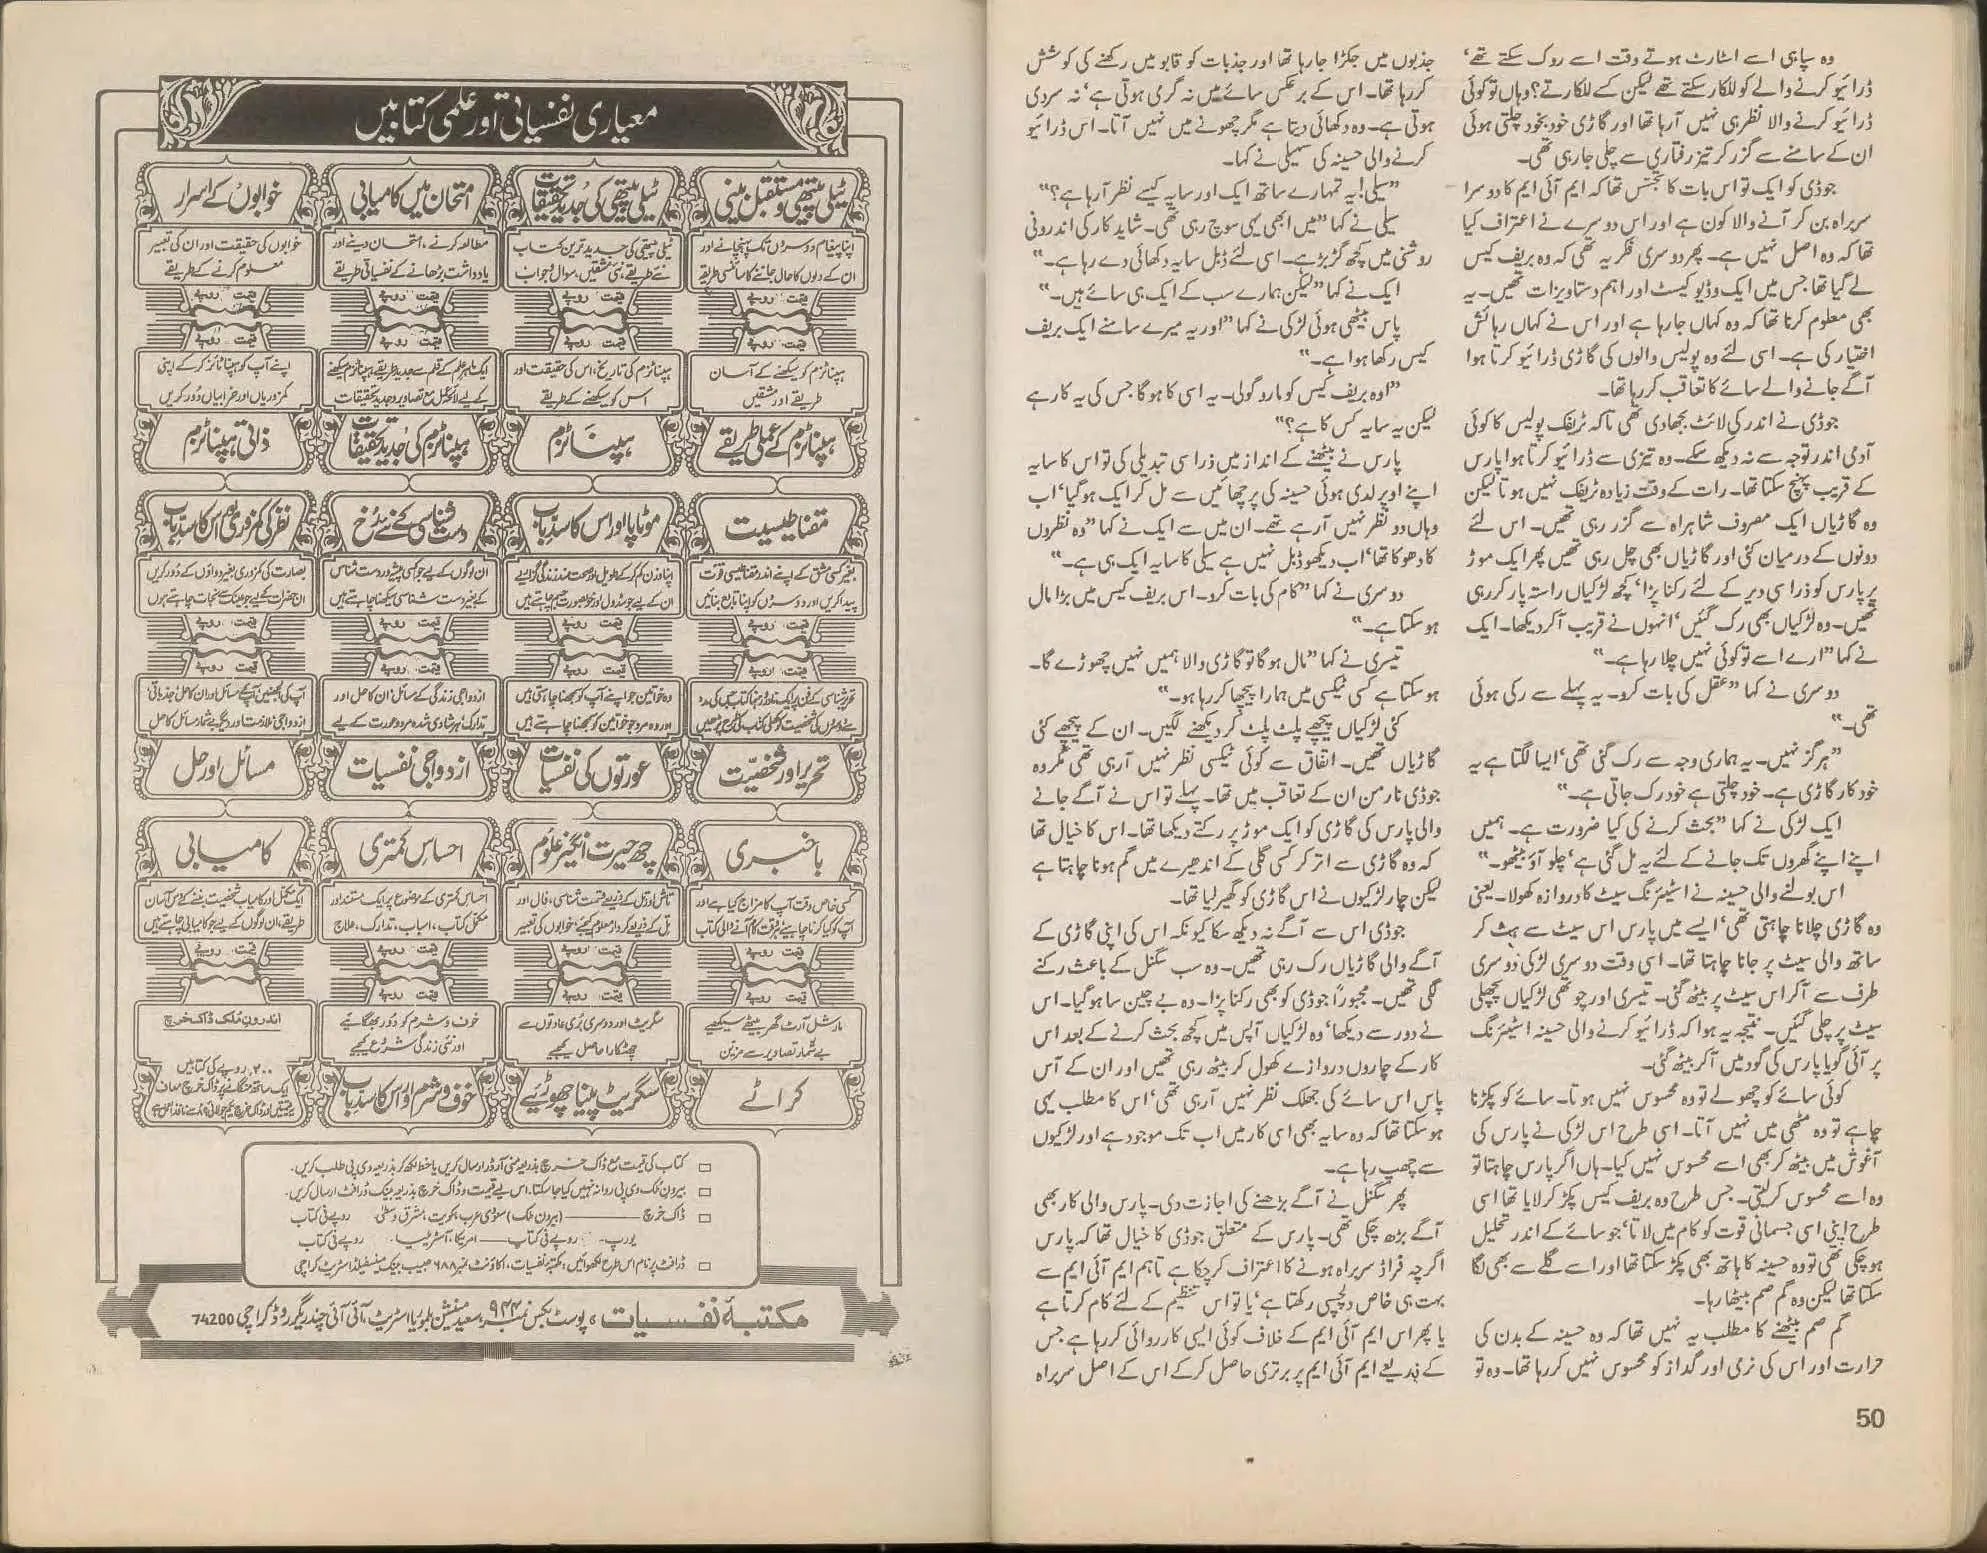 وہ سپاہی اسے اسٹارٹ ہوتے وقت اسے روک سکتے تھے‘
ڈرائیو کرنے والے کو للکار سکتے تھے لیکن کسے للکارتے؟ وہاں تو کوئی
ڈرائیو کرنے والا نظر ہی نہیں آرہا تھا اور گاڑی خود بخود چلتی ہوئی
ان کے سامنے سے گزر کر تیز رفتاری سے چلی جارہی تھی۔
جوڈی کو ایک تو اس بات کا تجسّس تھا کہ ایم آئی ایم کا دوسرا
سربراہ بن کر آنے والا کون ہے اور اس دوسرے نے اعتراف کیا
تھا کہ وہ اصل نہیں ہے۔ پھر دوسری فکر یہ تھی کہ وہ بریف کیس
لے گیا تھا جس میں ایک وڈیو کیسٹ اور اہم دستاویزات تھیں۔ یہ
بھی معلوم کرنا تھا کہ وہ کہاں جارہا ہے اور اس نے کہاں رہائش
اختیار کی ہے۔ اسی لئے وہ پولیس والوں کی گاڑی ڈرائیو کرتا ہوا
آگے جانے والے سائے کا تعاقب کررہا تھا۔
جوڈی نے اندر کی لائٹ بجھادی تھی تاکہ ٹریفک پولیس کا کوئی
آدمی اندر توجہ سے نہ دیکھ سکے۔ وہ تیزی سے ڈرائیو کرتا ہوا پارس
کے قریب پہنچ سکتا تھا۔ رات کے وقت زیادہ ٹریفک نہیں ہوتا لیکن
وہ گاڑیاں ایک مصروف شاہراہ سے گزر رہی تھیں۔ اس لئے
دونوں کے درمیان کئی اور گاڑیاں بھی چل رہی تھیں پھر ایک موڑ
پر پارس کو ذرا سی دیر کے لئے رکنا پڑا‘ کچھ لڑکیاں راستہ پار کررہی
تھیں۔ وہ لڑکیاں بھی رک گئیں‘ انہوں نے قریب آکر دیکھا۔ ایک
نے کہا ”ارے اسے تو کوئی نہیں چلا رہا ہے۔“
دوسری نے کہا ”عقل کی بات کرو۔ یہ پہلے سے رکی ہوئی
تھی۔“
”ہرگز نہیں۔ یہ ہماری وجہ سے رک گئی تھی‘ ایسا لگتا ہے یہ
خود کار گاڑی ہے۔ خود چلتی ہے خود رک جاتی ہے۔“
ایک لڑکی نے کہا ”بحث کرنے کی کیا ضرورت ہے۔ ہمیں
اپنے اپنے گھروں تک جانے کے لئے یہ مل گئی ہے‘ چلو آؤ بیٹھو۔“
اس بولنے والی حسینہ نے اسٹیرنگ سیٹ کا دروازہ کھولا۔ یعنی
وہ گاڑی چلانا چاہتی تھی‘ ایسے میں پارس اس سیٹ سے ہٹ کر
ساتھ والی سیٹ پر جانا چاہتا تھا۔ اسی وقت دوسری لڑکی دوسری
طرف سے آکر اس سیٹ پر بیٹھ گئی۔ تیسری اور چوتھی لڑکیاں پچھلی
سیٹ پر چلی گئیں۔ نتیجہ یہ ہوا کہ ڈرائیو کرنے والی حسینہ اسٹیئرنگ
پر آئی گویا پارس کی گود میں آکر بیٹھ گئی۔
کوئی سائے کو چھولے تو وہ محسوس نہیں ہوتا۔ سائے کو پکڑنا
چاہے تو وہ مٹھی میں نہیں آتا۔ اسی طرح اس لڑکی نے پارس کی
آغوش میں بیٹھ کر بھی اسے محسوس نہیں کیا۔ ہاں اگر پارس چاہتا تو
وہ اسے محسوس کرلیتی۔ جس طرح وہ بریف کیس پکڑ کر لایا تھا اسی
طرح اپنی اسی جسمانی قوت کو کام میں لاتا‘ جو سائے کے اندر تحلیل
ہوچکی تھی تو وہ حسینہ کا ہاتھ بھی پکڑ سکتا تھا اور اسے گلے سے بھی لگا
سکتا تھا لیکن وہ گم صم بیٹھا رہا۔
گم صم بیٹھنے کا مطلب یہ نہیں تھا کہ وہ حسینہ کے بدن کی
حرارت اور اس کی نرمی اور گداز کو محسوس نہیں کررہا تھا۔ وہ تو
جذبوں میں جکڑا جارہا تھا اور جذبات کو قابو میں رکھنے کی کوشش
کررہا تھا۔ اس کے برعکس سائے میں نہ گرمی ہوتی ہے‘ نہ سردی
ہوتی ہے۔ وہ دکھائی دیتا ہے مگر چھونے میں نہیں آتا۔ اس ڈرائیو
کرنے والی حسینہ کی سہیلی نے کہا۔
”سیلی! یہ تمہارے ساتھ ایک اور سایہ کیسے نظر آرہا ہے؟“
سیلی نے کہا ”میں ابھی یہی سوچ رہی تھی۔ شاید کار کی اندرونی
روشنی میں کچھ گڑبڑ ہے۔ اسی لئے ڈبل سایہ دکھائی دے رہا ہے۔“
ایک نے کہا ”لیکن ہمارے سب کے ایک ہی سائے ہیں۔“
پاس بیٹھی ہوئی لڑکی نے کہا ”اور یہ میرے سامنے ایک بریف
کیس رکھا ہوا ہے۔“
”اوہ بریف کیس کو مارو گولی۔ یہ اسی کا ہوگا جس کی یہ کار ہے
لیکن یہ سایہ کس کا ہے؟“
پارس نے بیٹھنے کے انداز میں ذرا سی تبدیلی کی تو اس کا سایہ
اپنے اوپر لدی ہوئی حسینہ کی پرچھائیں سے مل کر ایک ہوگیا‘ اب
وہاں دو نظر نہیں آرہے تھے۔ ان میں سے ایک نے کہا ”وہ نظروں
کا دھوکا تھا‘ اب دیکھو ڈبل نہیں ہے سیلی کا سایہ ایک ہی ہے۔“
دوسری نے کہا ”کام کی بات کرو۔ اس بریف کیس میں بڑا مال
ہوسکتا ہے۔“
تیسری نے کہا ”مال ہوگا تو گاڑی والا ہمیں نہیں چھوڑے گا۔
ہوسکتا ہے کسی ٹیکسی میں ہمارا پیچھا کررہا ہو۔“
کئی لڑکیاں پیچھے پلٹ پلٹ کر دیکھنے لگیں۔ ان کے پیچھے کئی
گاڑیاں تھیں۔ اتفاق سے کوئی ٹیکسی نظر نہیں آرہی تھی مگر وہ
جوڈی نارمن ان کے تعاقب میں تھا۔ پہلے تو اس نے آگے جانے
والی پارس کی گاڑی کو ایک موڑ پر رکتے دیکھا تھا۔ اس کا خیال تھا
کہ وہ گاڑی سے اتر کر کسی گلی کے اندھیرے میں گم ہونا چاہتا ہے
لیکن چار لڑکیوں نے اس گاڑی کو گھیر لیا تھا۔
جوڈی اس سے آگے نہ دیکھ سکا کیونکہ اس کی اپنی گاڑی کے
آگے والی گاڑیاں رک رہی تھیں۔ وہ سب سگنل کے باعث رکنے
لگی تھیں۔ مجبوراً جوڈی کو بھی رکنا پڑا۔ وہ بے چین سا ہوگیا۔ اس
نے دور سے دیکھا‘ وہ لڑکیاں آپس میں کچھ بحث کرنے کے بعد اس
کار کے چاروں دروازے کھول کر بیٹھ رہی تھیں اور ان کے آس
پاس اس سائے کی جھلک نظر نہیں آرہی تھی‘ اس کا مطلب یہی
ہوسکتا تھا کہ وہ سایہ بھی اسی کار میں اب تک موجود ہے اور لڑکیوں
سے چھپ رہا ہے۔
پھر سگنل نے آگے بڑھنے کی اجازت دی۔ پارس والی کار بھی
آگے بڑھ چکی تھی۔ پارس کے متعلق جوڈی کا خیال تھا کہ پارس
اگرچہ فراڈ سربراہ ہونے کا اعتراف کرچکا ہے تاہم ایم آئی ایم سے
بہت ہی خاص دلچسپی رکھتا ہے‘ یا تو اس تنظیم کے لئے کام کرتا ہے
یا پھر اس ایم آئی ایم کے خلاف کوئی ایسی کارروائی کررہا ہے جس
کے ذریعے ایم آئی ایم پر برتری حاصل کرکے اس کے اصل سربراہ
50
معیاری نفسیاتی اور علمی کتابیں
ٹیلی پیتھی و مستقبل بینی
اپنا پیغام دوسروں تک پہنچانے اور
ان کے دلوں کا حال جاننے کا سائنسی طریقے
قیمت روپے
ٹیلی پیتھی کی جدید تحقیقات
ٹیلی پیتھی کی جدید ترین کتاب
نئے طریقے، نئی مشقیں، سوال و جواب
قیمت روپے
امتحان میں کامیابی
مطالعہ کرنے، امتحان دینے اور
یادداشت بڑھانے کے نفسیاتی طریقے
قیمت روپے
خوابوں کے اسرار
خوابوں کی حقیقت اور ان کی تعبیر
معلوم کرنے کے طریقے
قیمت روپے
قیمت روپے
ہپناٹزم کو سیکھنے کے آسان
طریقے اور مشقیں
ہپناٹزم کے عملی طریقے
قیمت روپے
ہپناٹزم کی تاریخ، اس کی حقیقت اور
اس کو سیکھنے کے طریقے
ہپناٹزم
قیمت روپے
ایک ماہر علم کے قلم سے جدید طریقے ہپناٹزم سیکھنے
کے لیے لائحہ عمل مع تصاویر و جدید تحقیقات
ہپناٹزم کی جدید تحقیقات
قیمت روپے
اپنے آپ کو ہپناٹائز کر کے اپنی
کمزوریاں اور خرابیاں دور کریں
ذاتی ہپناٹزم
مقناطیسیت
بغیر کسی مشق کے اپنے اندر مقناطیسی قوت
پیدا کریں اور دوسروں کو اپنا تابع بنائیں
قیمت روپے
موٹاپا اور اس کا سدِباب
اپنا وزن کم کر کے طویل اور صحت مند زندگی گزاریے
ان کے لیے جو سڈول اور خوبصورت جسم چاہتے ہیں
قیمت روپے
دست شناسی کے نئے رخ
ان لوگوں کے لیے جو کسی پیشہ ور دست شناس
کے بغیر دست شناسی سیکھنا چاہتے ہیں
قیمت روپے
نظر کی کمزوری اور اس کا سدِباب
بصارت کی کمزوری بغیر دواؤں کے دور کریں
ان حضرات کے لیے جو عینک سے نجات چاہتے ہوں
قیمت روپے
قیمت روپے
تحریر اور شخصیّت
قیمت روپے
وہ خواتین جو اپنے آپ کو سمجھنا چاہتی ہیں
اور وہ مرد جو خواتین کو سمجھنا چاہتے ہیں
عورتوں کی نفسیات
قیمت روپے
ازدواجی زندگی کے مسائل ان کا حل اور
تدارک ہر شادی شدہ مرد و عورت کے لیے
ازدواجی نفسیات
قیمت روپے
آپ کی الجھنیں آپ کے مسائل اور ان کا حل، جذباتی
ازدواجی ملازمت اور دیگر بے شمار مسائل کا حل
مسائل اور حل
باخبری
کسی خاص وقت آپ کا مزاج کیا ہے اور
آپ کو کیا کرنا چاہیے ہر وقت کام آنے والی کتاب
قیمت روپے
چھ حیرت انگیز علوم
تاش اور تل کے ذریعے قسمت شناسی، فال اور
تل کے ذریعے کردار معلوم کیجئے، خوابوں کی تعبیر
قیمت روپے
احساسِ کمتری
احساس کمتری کے موضوع پر ایک مستند اور
مکمل کتاب، اسباب، تدارک، علاج
قیمت روپے
کامیابی
ایک مکمل اور کامیاب شخصیت بننے کے دس آسان
طریقے، ان لوگوں کے لیے جو کامیابی چاہتے ہیں
قیمت روپے
قیمت روپے
مارشل آرٹ گھر بیٹھے سیکھیے
بے شمار تصاویر سے مزین
کراٹے
قیمت روپے
سگریٹ اور دوسری بری عادتوں سے
چھٹکارا حاصل کیجیے
سگریٹ پینا چھوڑیے
قیمت روپے
خوف و شرم کو دور بھگائیے
اور نئی زندگی شروع کیجیے
خوف و شرم اور اس کا سدِباب
اندرون ملک ڈاک خرچ
۲۰۰ روپے کی کتابیں
ایک ساتھ منگانے پر ڈاک خرچ معاف
کتاب کی قیمت مع ڈاک خرچ بذریعہ منی آرڈر ارسال کریں یا خط لکھ کر بذریعہ وی پی طلب کریں۔
بیرون ملک وی پی روانہ نہیں کیا جاسکتا، اس لیے قیمت و ڈاک خرچ بذریعہ بینک ڈرافٹ ارسال کریں۔
ڈاک خرچ (بیرون ملک) سعودی عرب، کویت، مشرق وسطیٰ۔ روپے فی کتاب
یورپ۔ روپے فی کتاب امریکا، آسٹریلیا۔ روپے فی کتاب
ڈرافٹ پر نام اس طرح لکھوائیں: مکتبہ نفسیات، اکاؤنٹ نمبر ۶۸۸ حبیب بینک مینسفیلڈ اسٹریٹ کراچی
مکتبۂ نفسیات، پوسٹ بکس نمبر ۹۴۴، سعید مینشن بلوریا اسٹریٹ، آئی آئی چندریگر روڈ کراچی 74200